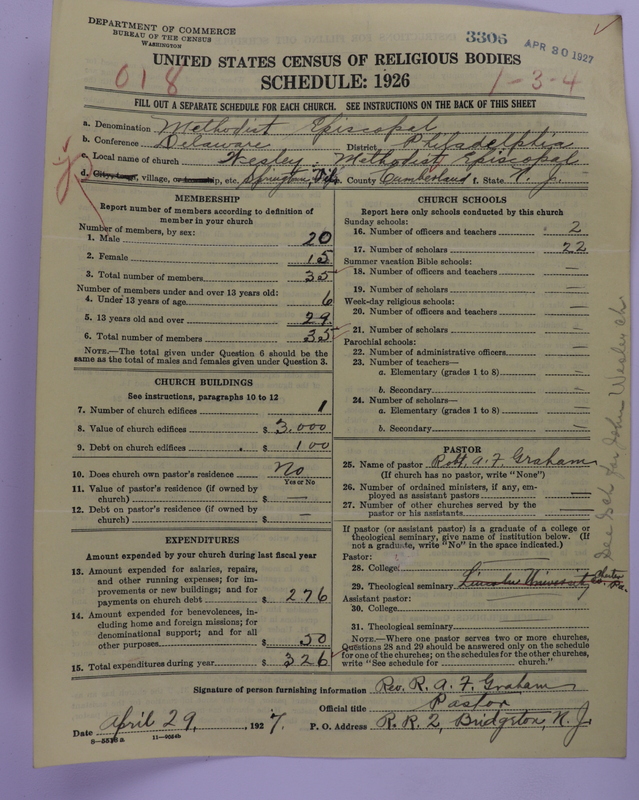 DEPARTMENT OF COMMERCE
BUREAU OF THE CENSUS
WASHINGTON
3306
APR 30 1927
UNITED STATES CENSUS OF RELIGIOUS BODIES
018
SCHEDULE: 1926
1-3-4
FILL OUT A SEPARATE SCHEDULE FOR EACH CHURCH. SEE INSTRUCTIONS ON THE BACK OF THIS SHEET
a. Denomination Methodist Episcopal
b. Conference Delaware District Philadelphia
c. Local name of church Wesley: Methodist Episcopal
d. City, town, village, or township, etc. County Cumberland f. State N. J.
MEMBERSHIP
Report number of members according to definition of
member in your church
Number of members, by sex:
1. Male 20
2. Female 15
3. Total number of members 35
Number of members under and over 13 years old:
4. Under 13 years of age 6
5. 13 years old and over 29
6. Total number of members 35
NOTE.—The total given under Question 6 should be
same as total of males and females given under Question 3.
CHURCH BUILDINGS
See instructions, paragraphs 10 to 12
7. Number of church edifices 1
8. Value of church edifices $ 3,000
9. Debt on church edifices $ 100
10. Does church own pastor's residence No
Yes or No
11. Value of pastor's residence (if owned by
church) $ —
12. Debt on pastor's residence (if owned by
church) $ —
EXPENDITURES
Amount expended by your church during last fiscal year
13. Amount expended for salaries, repairs,
and other running expenses; for im-
provements or new buildings; and for
payments on church debt $ 276
14. Amount expended for benevolences, in-
cluding home and foreign missions; for
denominational support; and for all
other purposes $ 50
15. Total expenditures during year $ 326
CHURCH SCHOOLS
Report here only schools conducted by this church
Sunday schools:
16. Number of officers and teachers 2
17. Number of scholars 22
Summer vacation Bible schools:
18. Number of officers and teachers —
19. Number of scholars —
Week-day religious schools:
20. Number of officers and teachers —
21. Number of scholars —
Parochial schools:
22. Number of administrative officers —
23. Number of teachers—
a. Elementary (grades 1 to 8) —
b. Secondary —
24. Number of scholars—
a. Elementary (grades 1 to 8) —
b. Secondary —
PASTOR
25. Name of pastor Robt. A. F. Graham
(If church has no pastor, write "None")
26. Number of ordained ministers, if any, em-
ployed as assistant pastors —
27. Number of other churches served by the
pastor or his assistants —
If pastor (or assistant pastor) is a graduate of a college or
theological seminary, give name of institution below. (If
not a graduate, write "No" in the space indicated.)
Pastor:
28. College
29. Theological seminary Lincoln University Chester Co. Pa.
Assistant pastor:
30. College
31. Theological seminary
NOTE.—Where one pastor serves two or more churches,
Questions 28 and 29 should be answered only on the schedule
for one of the churches; on the schedules for the other churches,
write "See schedule for church."
See Sch. for John Wesley Ch.
Signature of person furnishing information Rev. R. A. F. Graham
Official title Pastor
Date April 29, 1927. P. O. Address R. R. 2, Bridgeton, N. J.
8—5518 a 11—9064b